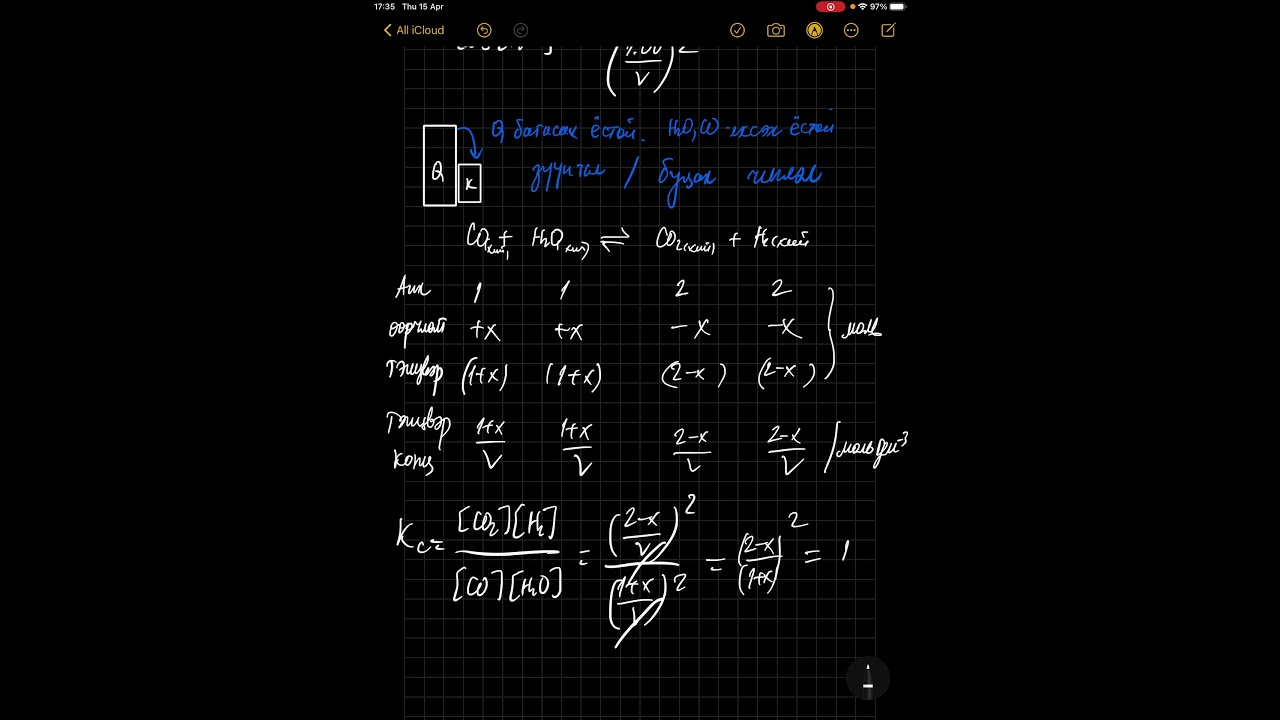 17:35 Thu 15 Apr 97%
All iCloud
V
Q багасах ёстой. H2O, CO ихсэх ёстой
Q K урвал / буцах чиглэл
CO(хий) + H2O(хий) ⇌ CO2(хий) + H2(хий)
Анх 1 1 2 2
өөрчлөлт +x +x -x -x моль
Тэнцвэр (1+x) (1+x) (2-x) (2-x)
Тэнцвэр 1+x/V 1+x/V 2-x/V 2-x/V / моль дм-3
конц
Kc= [CO2][H2] / [CO][H2O] = (2-x/V)2 / (1+x/V)2 = (2-x)2 / (1+x) = 1